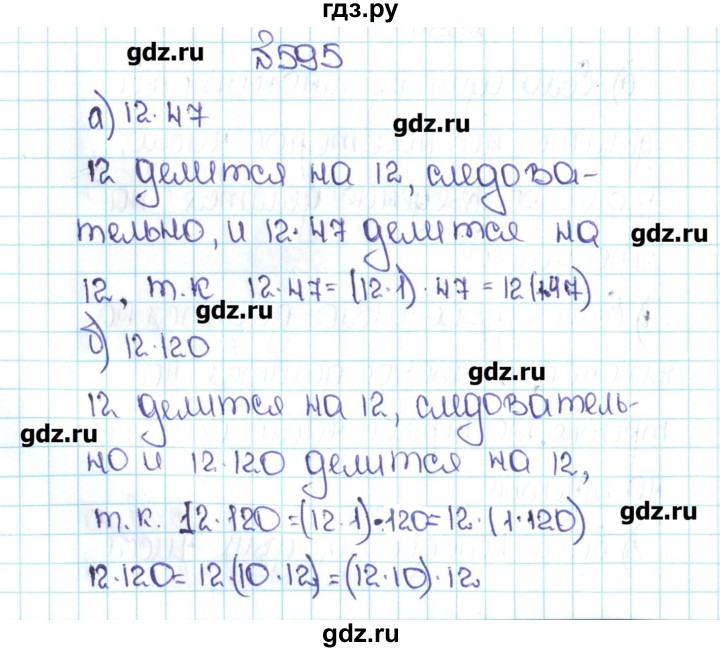 гдз.ру
gdz.ru
№595
а) 12·47
gdz.ru
12 делится на 12, следова-
тельно, и 12·47 делится на
gdz.ru
12, т.к 12·47=(12·1)·47=12(1·47)
gdz.ru
б) 12·120
gdz.ru
12 делится на 12, следователь-
gdz.ru
но и 12·120 делится на 12,
т.к. 12·120=(12·1)·120=12·(1·120)
gdz.ru
12·120=12·(10·12)=(12·10)·12.
gdz.ru